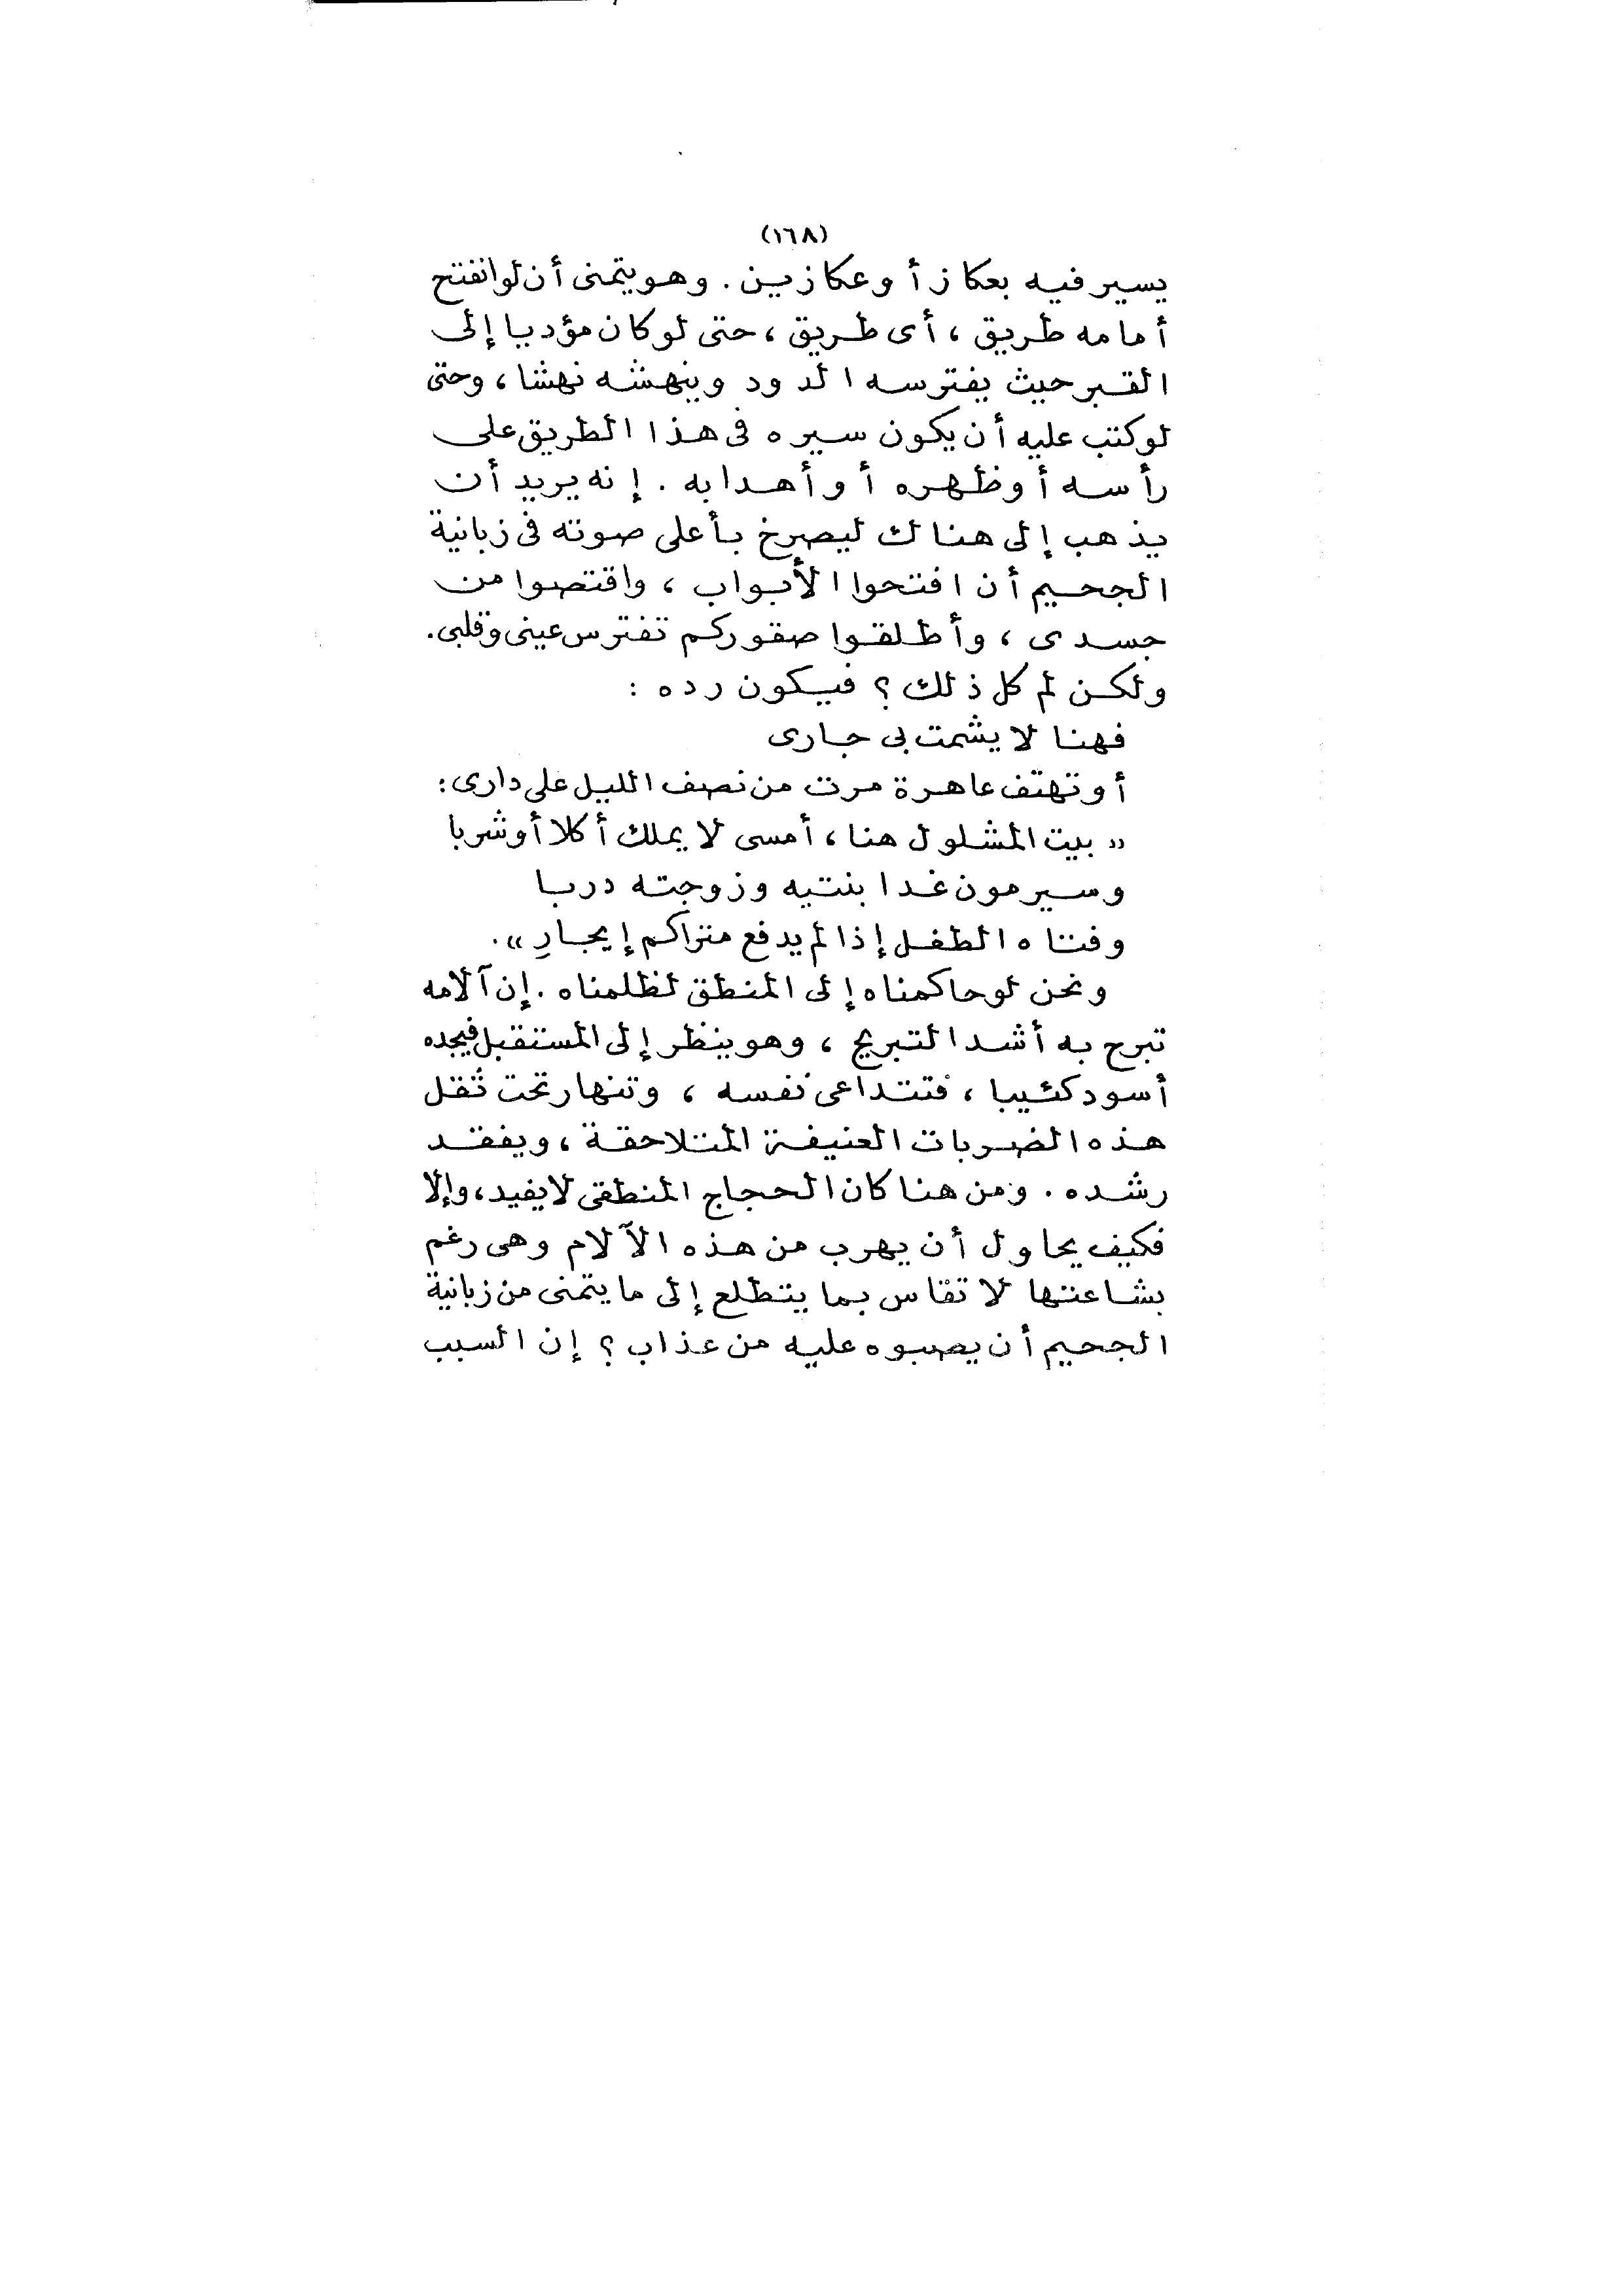 (١٦٨)
يسير فيه بعكاز أو عكازين . وهو يتمنى أن لو انفتح
أمامه طريق ، أى طريق ، حتى لو كان مؤديا إلى
القبر حيث يفترسه الدود وينهشه نهشا ، وحتى
لو كتب عليه أن يكون سيره فى هذا الطريق على
رأسه أو ظهره أو أهدابه . إنه يريد أن
يذهب إلى هناك ليصرخ بأعلى صوته فى زبانية
الجحيم أن افتحوا الأبواب ، واقتصوا من
جسدى ، وأطلقوا صقوركم تفترس عينى وقلبى .
ولكن لم كل ذلك ؟ فيكون رده :
فهنا لا يشمت بى جارى
أو تهتف عاهرة مرت من نصف الليل على دارى :
« بيت المشلول هنا ، أمسى لا يملك أكلا أو شربا
وسيرمون غدا بنتيه وزوجته دربا
وفتاه الطفل إذا لم يدفع متراكم إيجارِ » .
ونحن لو حاكمناه إلى المنطق لظلمناه . إن آلامه
تبرح به أشد التبريح ، وهو ينظر إلى المستقبل فيجده
أسود كئيبا ، فتتداعى نفسه ، وتنهار تحت ثُقل
هذه الضربات العنيفة المتلاحقة ، ويفقد
رشده . ومن هنا كان الحجاج المنطقى لا يفيد ، وإلا
فكيف يحاول أن يهرب من هذه الآلام وهى رغم
بشاعتها لا تقاس بما يتطلع إلى ما يتمنى من زبانية
الجحيم أن يصبوه عليه من عذاب ؟ إن السبب